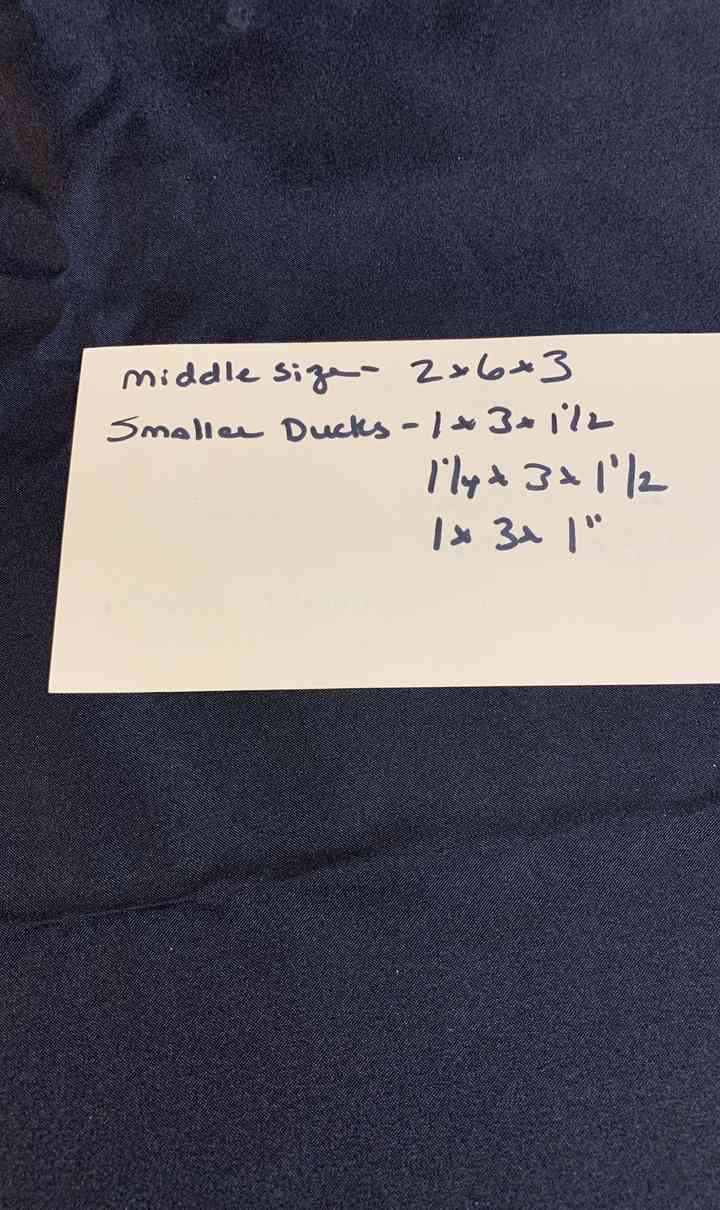 middle size - 2 x 6 x 3
Smaller Ducks - 1 x 3 x 1 1/2
1 1/4 x 3 x 1 1/2
1 x 3 x 1"